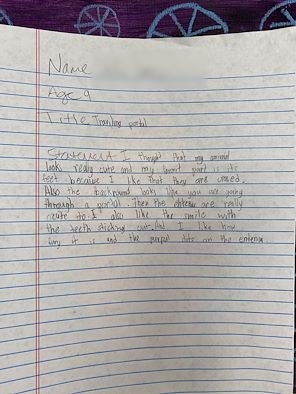 Name
Age 9
Title Traveling portal
Statement I thought that my animal
look really cute and my favorit part is its
feet because I like that they are curved.
Also the backround looks like you are going
through a portal. Then the antenas are really
cute to. I also like the smile with
the teeth sticking out. And I like how
it is and the purpul dots on the entenas.